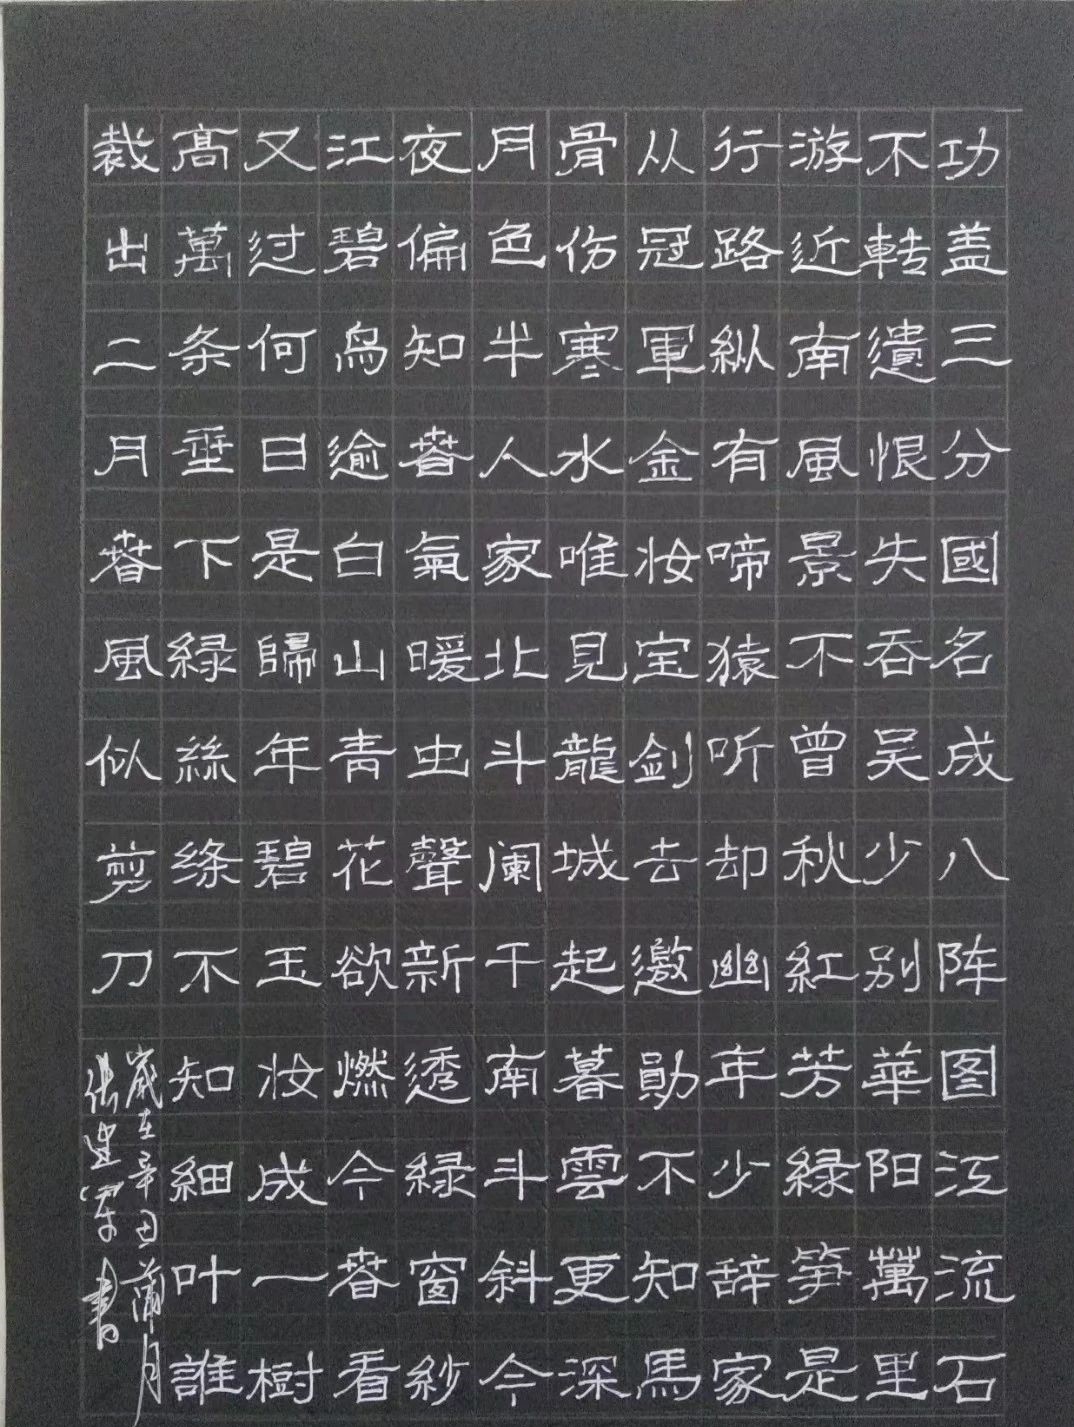 功盖三分國名成八阵图江流石
不轉遺恨失吞吴少别華阳萬里
游近南風景不曾秋紅芳緑笋是
行路縱有啼猿听却幽年少辞家
从冠軍金妆宝剑去邀勛不知馬
骨伤寒水唯見龍城起暮雲更深
月色半人家北斗阑干南斗斜今
夜偏知春氣暖虫聲新透緑窗紗
江碧鸟逾白山青花欲燃今春看
又过何日是歸年碧玉妆成一樹
高萬条垂下緑絲绦不知細叶誰
裁出二月春風似剪刀
歲在辛丑蒲月
张建軍書